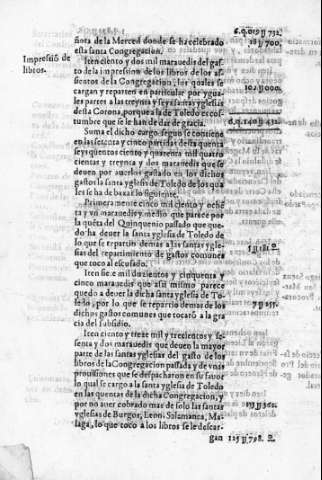 ñora de la Merced donde se ha celebrado
esta santa Congregacion.
18 y 700.
Impressió de
libros.
Iten ciento y dos mil marauedis del gas
to de la impression de los libros de los as
sientos de la Congregacion, los quales se
cargan y reparten en particular por ygua
les partes a las treynta y seys santas yglesias
desta Corona, porque a la de Toledo es cos
tumbre que se le han de dar de gracia.
102 y 000.
Suma el dicho cargo segun se contiene
en las setenta y cinco partidas desta quenta
seys quentos ciento y quarenta mil quatro
cientas y treynta y dos marauedis que se
deuen por auerlos gastado en los dichos
gastos la santa yglesia de Toledo de los qua
les se ha de baxar lo siguiente.
6.q.140 y 432.
Primeramente cinco mil ciento y oche
ta y vn marauedis y medio que parece por
la quéta del Quinquenio passado que que-
do ha deuer la santa yglesia de Toledo de
lo que se repartio demas a las santas ygle-
sias del repartimiento de gastos comunes
que toco al escusado.
5 y 181
Iten siete mil dozientos y cinquenta y
cinco marauedis que assi mismo parece
quedo a deuer la dicha santa yglesia de To-
ledo, por lo que se repartio demas de los
dichos gastos comunes que tocaró a la gra
cia del subsidio.
7 y 255.
Iten ciento y treze mil y trecientos y se-
senta y dos marauedis que deuen la mayor
parte de las santas yglesias del gasto de los
libros de la Congregacion passada y de vnas
prouissiones que se despacharon en su fauor
lo qual se cargo a la santa yglesia de Toledo
en las quentas de la dicha Congregacion, y
por no auer cobrado mas de solo las santas
yglesias de Burgos, Leon, Salamanca, Ma-
laga, lo que toco a los libros se le descar-
gan 125 y 798.